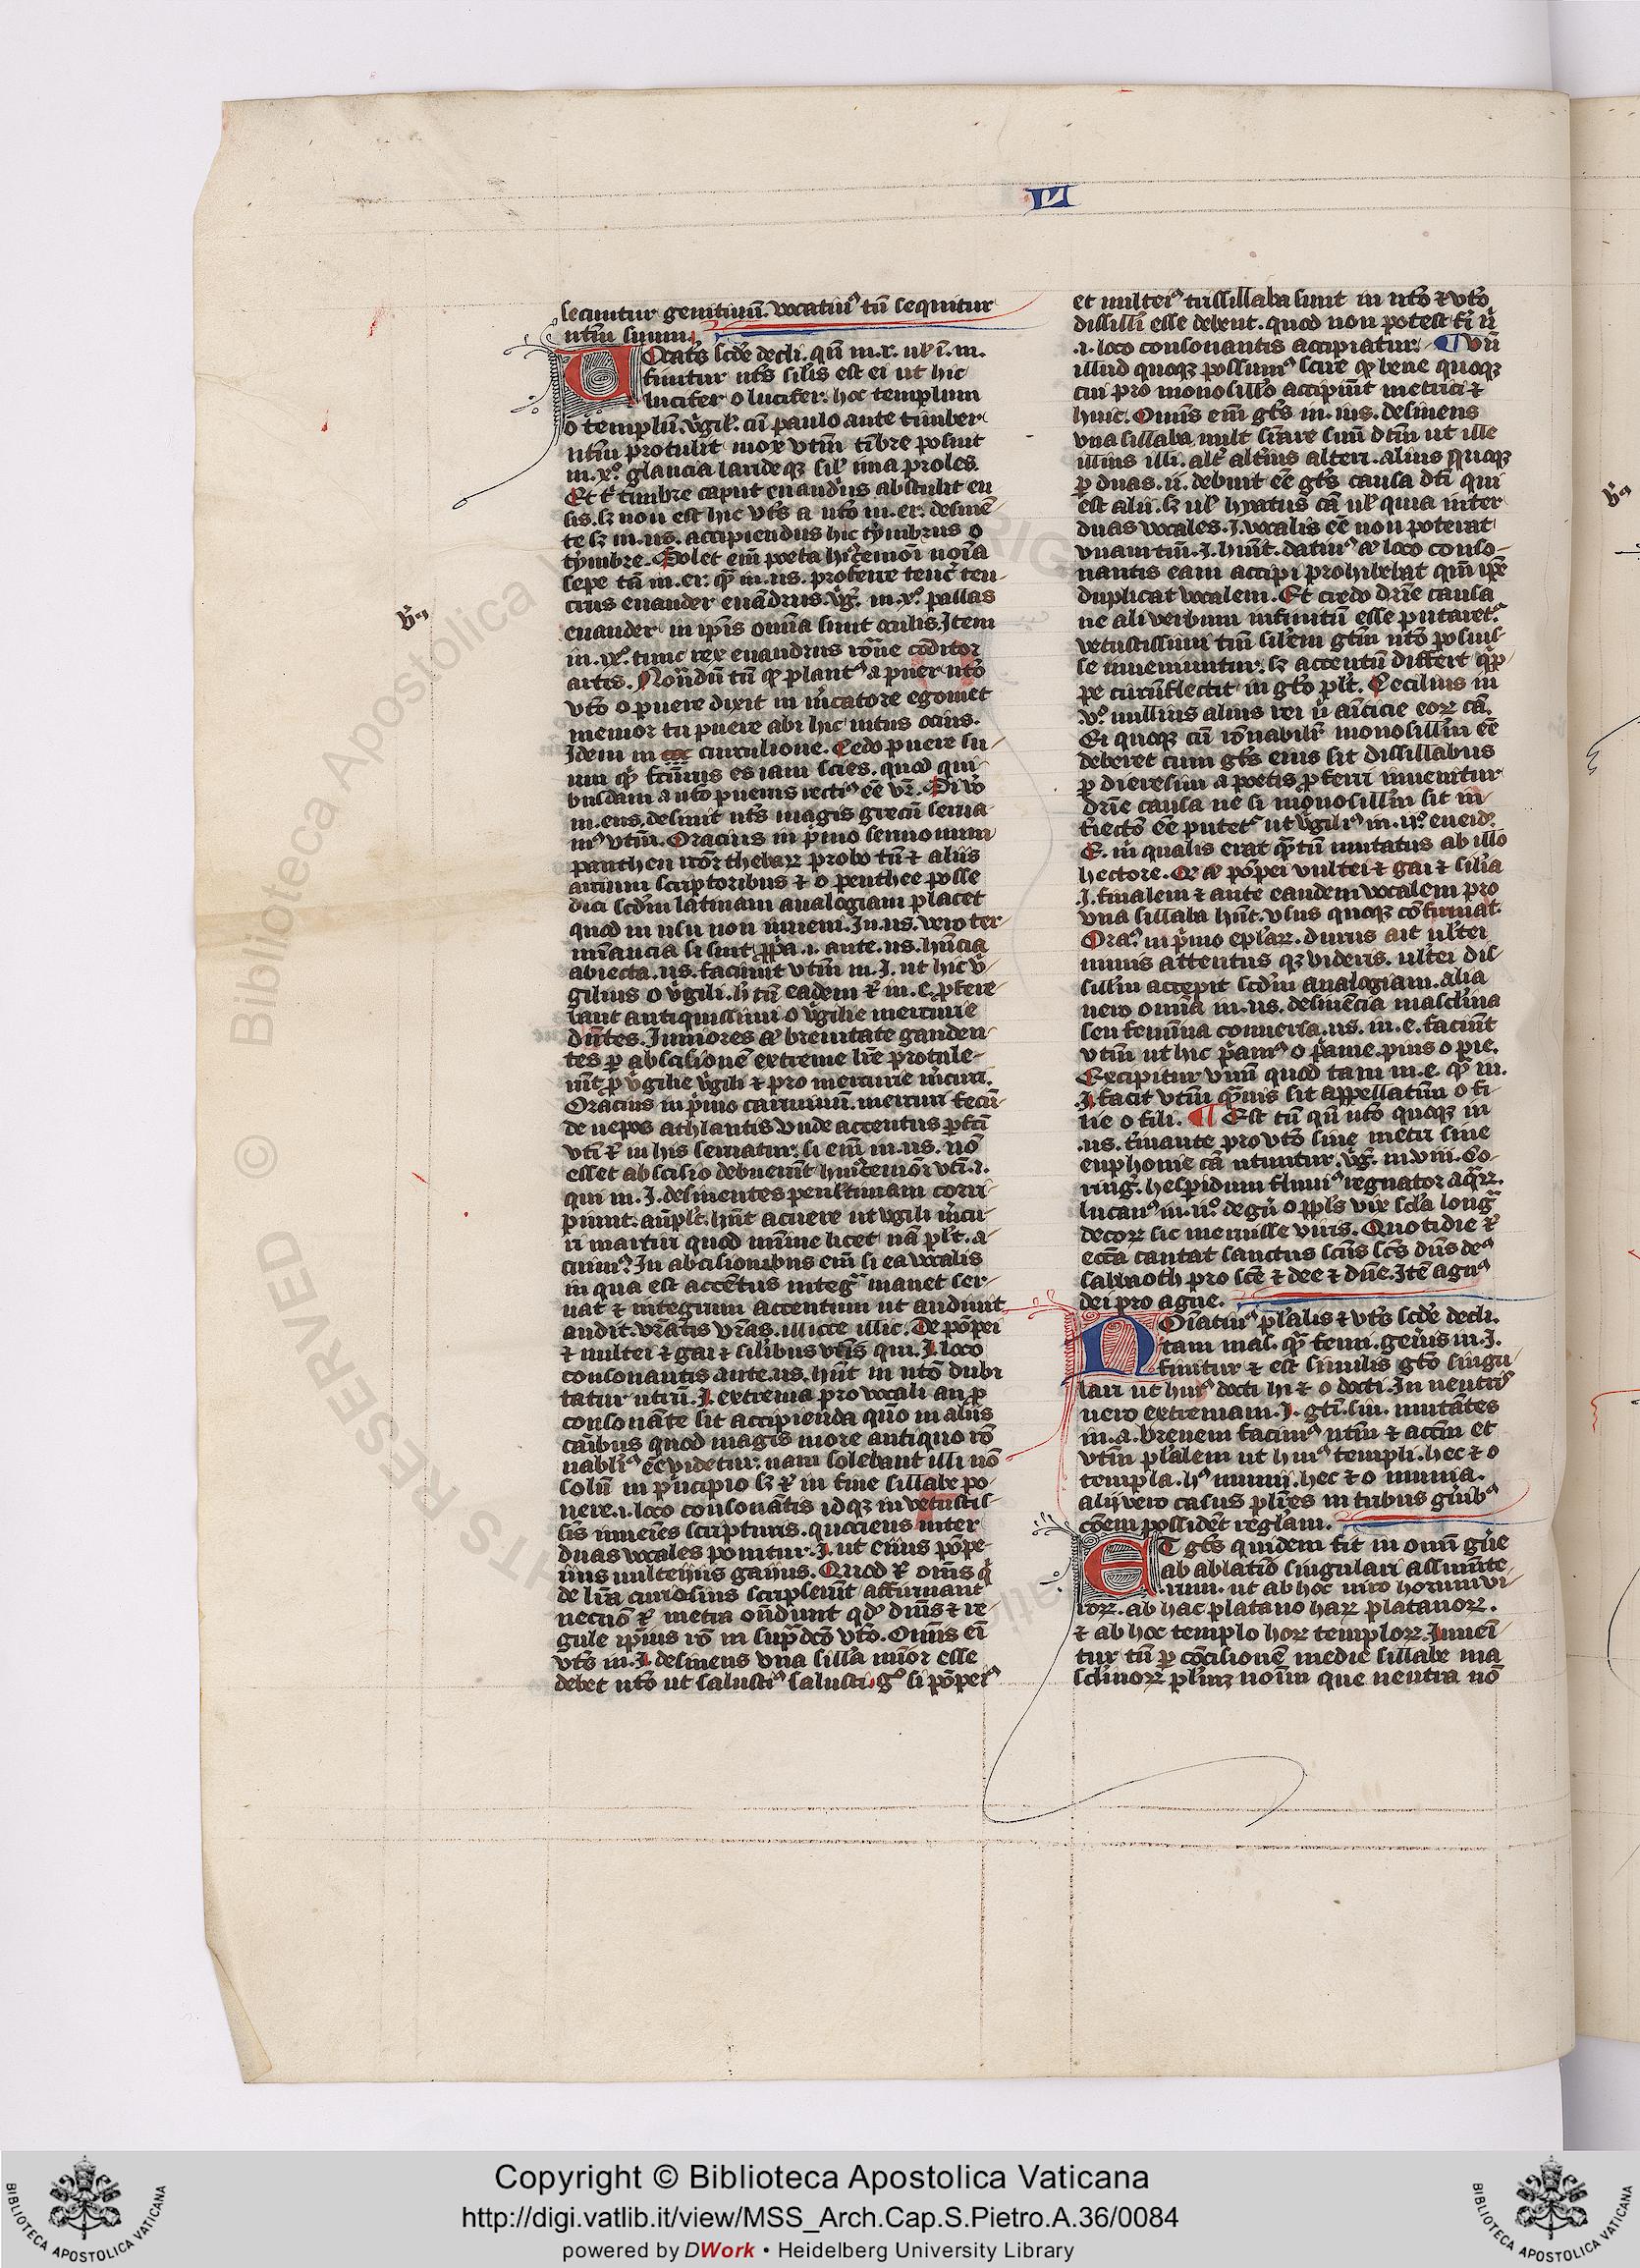 VII
secuntur genitiuũ. vocatiuꝰ tñ sequitur
ntm̃ suum.
Uocatꝰ scd̃e decli. qũ in.r. ul' ĩ. m.
finitur ntõ siľis est ei ut hic
lucifer o lucifer. hoc templum
o templũ. v̾gil'. cũ paulo ante timber
ntm̃ protulit mox vtm̃ tĩbre posuit
in.x°. glaucia larideqꝫ sil' ima proles.
Et t' timbre caput euandrius abstulit en
sis. sꝫ non est hic vts̃ a ntõ in.er. desinẽ
te sꝫ in.us. accipiendus hic tymbrus o
tymbre. Solet eni᷒ poeta hĩcemõi noĩa
sepe tã in.er. qᷓ in.us. proferre tenc̾ teu
crus euander euãdrus. v̾g. in.x°. pallas
euander in ip̃is omnia sunt oculis. Item
in.ix°. tunc rex euandrus rõne cõditor
artis. Nondũ tñ ꝙ plantꝰ a puer ntõ
vtõ o puere dixit in m̾catore egomet
memor tu puere abi hic intus ocius.
Idem in curculione. Cedo puere su
um
busdam a ntõ puerus rectiꝰ eẽ vr̃. Si v̾o
in.eus. desinit nts̃ magis grecũ serua
mꝰ vtm̃. Oracius in p̾mo sermonum
pantheu rcõr thebaꝝ probo tñ ⁊ aliis
artium scriptoribus ⁊ o penthee posse
dici scd̃m latinam analogiam placet
quod in usu non inueni. In.us. vero ter
minancia si sint ꝓp̃a .i. ante .us. hñcia
abiecta.us. faciunt vtm̃ in.I. ut hic v̾
gilius o v̾gili. h̃ tñ eadem ⁊ in.e. ꝓfere
bant antiquissimi o v̾gilie mercurie
dñtes. Iuniores āe breuitate gauden
tes ꝑ abscisionẽ extreme lr̃e protule
rũt ꝓ v̾gilie v̾gili ⁊ pro mercurie m̾curi.
Oracius in p̾mo carminum. mercuri fecũ
de nepos athlantis vnde accentus ꝑfc̃i
vtĩ ⁊ in his seruatur. si eni᷒ in.us. nõ
esset abscisio debuerũt huic̃emõi vtĩ .i.
qui in.I. desinentes penultimam corri
piunt. añplt̃. hñt acuere ut v̾gili m̾cu
ri martiri quod minime licet nã plt̃. a
cuimꝰ. In abcisionibus eni᷒ si ea vocalis
in qua est accẽtus integᷓ manet ser
uat ⁊ integrum accentum ut audiuit
audit. vr̃atis vr̃as. illicce illic. De põpei
⁊ uultei ⁊ gai ⁊ silibus vtĩs qui.I. loco
consonantis ante.us. hñt in ntõ dubi
tatur utrũ.I. extrema pro vocali an ꝓ
consonãte sit accipienda quõ in aliis
cãibus quod magis more antiquo rõ
nabliꝰ eẽ videtur. nam solebant illi nõ
solũ in p̾ncipio sꝫ ⁊ in fine sillabe po
nere.i. loco consonãtis idqꝫ in vetustis
sis inueĩes scripturis. quociens inter
duas vocales ponitur.I. ut eiius põpe
iius uulteiius gaiius. Quod ⁊ omẽs q̾
de lr̃a curiosius scripserũt affirmant
necnõ ⁊ metra oñdunt qd̾ diuĩs ⁊ re
gule ip̃ius rõ in sup̾dcõ vtõ. Omĩs eĩ
vts̃ in.I. desinens vna silla minor esse
debet ntõ ut salustiꝰ salusti. g° si põpeiꝰ
et uulteiꝰ trissillaba sunt in ntõ ⁊ vtõ
dissillĩ esse debent. quod non potest fi̾ ñ
.i. loco consonantis accipiatur. ¶ Vñ
illud quoqꝫ possumꝰ scire ꝙ bene quoqꝫ
cui pro monosillõ accipiũt metrici ⁊
huic. Omĩs eni᷒ gts̃ in.ius. desinens
vna sillaba uult supare suũ dtm̃ ut ille
illius illi. alt̾ alt̾ius alteri. alius quoqꝫ
ꝑ duas.ii. debuit eẽ gts̃ causa dtĩ qui
est alii. sꝫ ul' hyatus cã ul' quia inter
duas vocales.I. vocalis eẽ non poterat
vnam tm̃.I. hũit. datiuꝰ āe loco conso
nantis eam accipi prohibebat qm̃ ip̃e
duplicat vocalem. Et credo drĩe causa
ne ali verbum infinitũ esse putaretꝰ
vetustissimi tñ siľem gtm̃ ntõ posuis
se inueniuntur. sꝫ accentũ differt q̃ꝑ
pe circũflectit in gtõ plt̃. Cecilius in
V°. nullius alius rei ñ amĩcicie eoꝝ cã.
Ei quoqꝫ cũ rõnabilr̃ monosillm̃ eẽ
deberet cum gts̃ eius sit dissillabus
ꝑ dieresim a poetis ꝓferri inuenitur
drĩe causa ne si monosillm̃ sit in
t̾iectõ eẽ putetꝰ ut v̾giliꝰ in.ii°. eneid.
E. m̃ qualis erat qᷓtũ mutatus ab illo
hectore. Q āe põpei vultei ⁊ gai ⁊ silia
I. finalem ⁊ ante eandem vocalem pro
vna sillaba hñt. vsus quoqꝫ cõfirmat.
Oraꝰ in p̾mo epl'aꝝ. durus ait ultei
nimis attentus qꝫ videris. ultei dis
sillm̃ accepit scd̃m analogiam. alia
uero omĩa in.us. desinẽcia mascl'ina
seu femĩna conuersa.us. in.e. faciũt
vtm̃ ut hic p̾amꝰ o p̾ame. pius o pie.
Excipitur vnũ quod tam in.e. qᷓ in.
I. facit vtm̃ qᷓuis sit appellatiũ o fi
lie o fili. ¶ Est tñ qñ ntõ quoqꝫ in
.us. t̾minante pro vtõ siue metri siue
euphonie cã utuntur. v̾g. in.viii. Co
rnig. hesperidum fluuiꝰ regnator aq̃ꝝ.
lucanꝰ in.ii°. degn̾ o ppl's vix scl'a longᷓ
decoꝝ sic meruisse viris. Quotidie ⁊
eccã cantat sanctus scũs scs̃ dñs deꝰ
sabaoth pro scẽ ⁊ dee ⁊ dñe. Itẽ agnꝰ
dei pro agne.
Noĩatiuꝰ pl'alis ⁊ vts̃ scd̃e decli.
tam mas. qᷓ femi. gen̾is in.I.
finitur ⁊ est similis gtõ singu
lari ut huiꝰ docti hi ⁊ o docti. In neutrĩs
uero extremam.I. gtĩ.sin. mutãtes
in.a. breuem facimꝰ ntm̃ ⁊ actm̃ et
vtm̃ pl'alem ut huiꝰ templi. hec ⁊ o
templa. hꝰ numĩ. hec ⁊ o numia.
alij vero casus pl'res in tribus gn̾ibꝰ
cõem possidẽt reglam.
ET gts̃ quidem fit in omni gñe
ab ablatiõ singulari assumẽte
.rum. ut ab hoc uiro horum vi
roꝝ. ab hac platano haꝝ platanoꝝ.
⁊ ab hoc templo hoꝝ temploꝝ. Inueĩ
tur tñ ꝑ cõcisionẽ medie sillabe ma
scl'inoꝝ pl'imꝫ noĩm que neutra nõ
Copyright © Biblioteca Apostolica Vaticana
http://digi.vatlib.it/view/MSS_Arch.Cap.S.Pietro.A.36/0084
powered by DWork • Heidelberg University Library
BIBLIOTECA APOSTOLICA VATICANA
BIBLIOTECA APOSTOLICA VATICANA